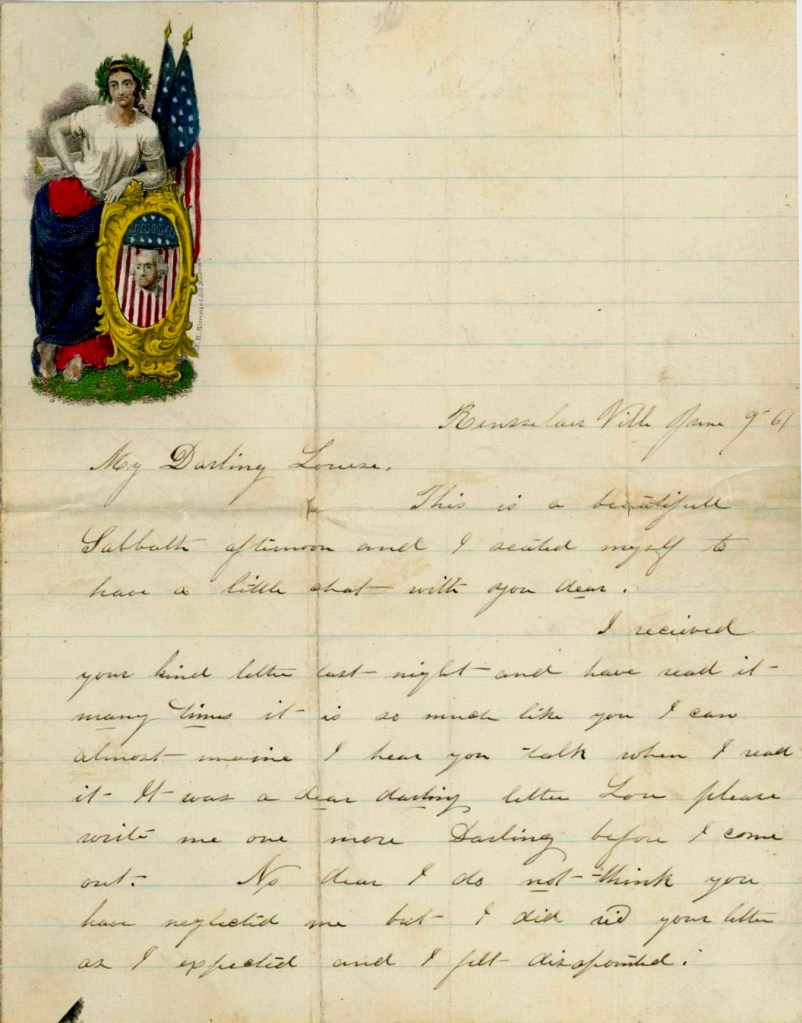 Rensselaer Ville June 9th 61
My Darling Louese.
This is a beautifull
Sabbath afternoon and I seated myself to
have a little chat with you dear.
I recieved
your kind letter last night and have read it
many times it is so much like you I can
almost I hear you talk when I read
it It was a dear darling letter Lou please
write me one more Darling before I come
out. No dear I do not think you
have neglected me but I did your letter
as I expected and I felt